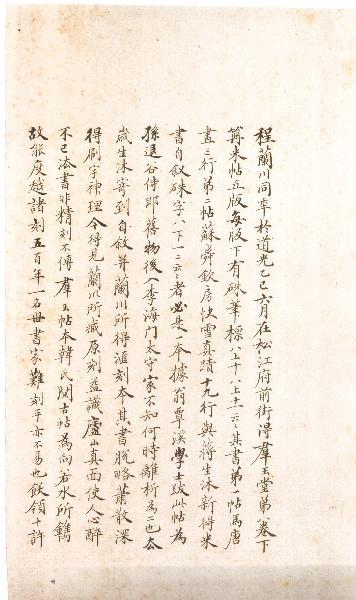 程蘭川同年於道光乙巳六月在松江府前街得羣玉堂第八卷下
籍米帖五版每版下有硃筆標八上十八上十一云云其書第一帖為唐
畫三行第二帖蘇舜欽房快雪真蹟十九行與蔣生沐新得米
書自敘硃字八下一二云云者必是一本據翁覃溪學士跋此帖為
孫退谷侍郎舊物後入李海門太守家不知何時離析為二也去
歲生沐寄到自敘并蘭川所得滙刻本其書脫略蕭散深
得刷字神理今得見蘭川所藏原刻益識廬山真面使人心醉
不已法書非精刻不傳羣玉帖本韓氏閱古帖為向若水所鐫
故能度越諸刻五百年一名世書家難刻手亦不易也飲領十許